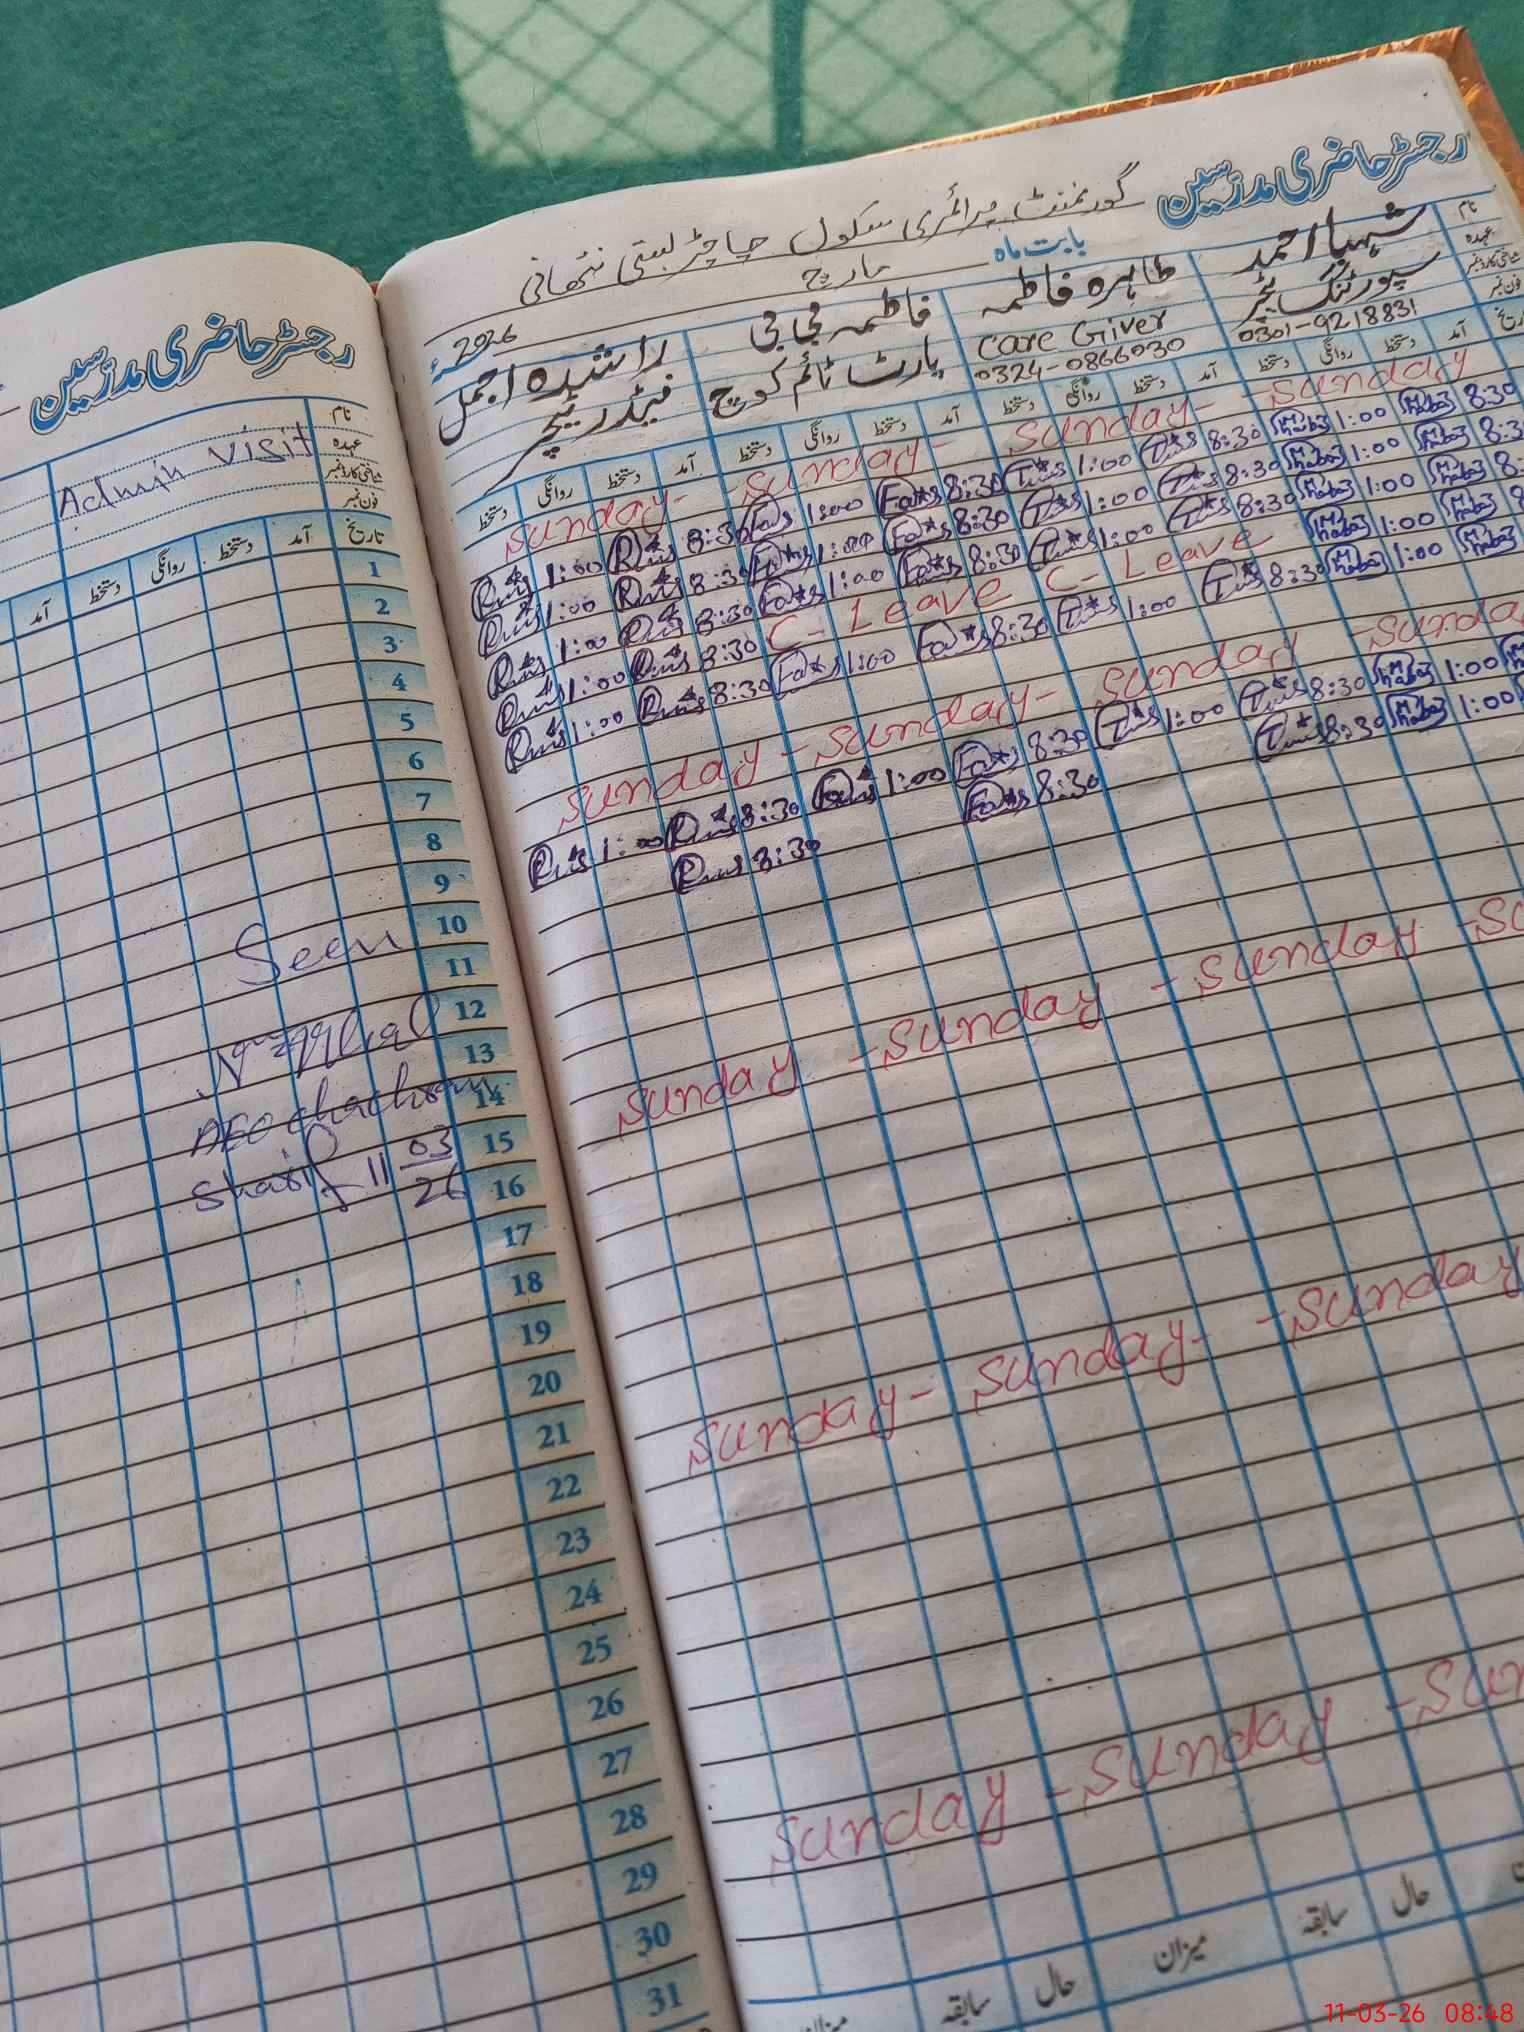 رجسٹر حاضری مدرسین
گورنمنٹ پرائمری سکول چاچڑ بستی نتھانی
بابت ماہ مارچ 2026ء
نام
عہدہ
شناختی کارڈ نمبر
فون نمبر
شہباز احمد
سپورٹنگ ٹیچر
0301-9218831
طاہرہ فاطمہ
Care Giver
0324-0866030
فاطمہ بی بی
پارٹ ٹائم کوچ
راشدہ اجمل
فیڈر ٹیچر
تاریخ آمد دستخط روانگی دستخط آمد دستخط روانگی دستخط آمد دستخط روانگی دستخط آمد دستخط روانگی دستخط
Sunday- -Sunday- -Sunday- -Sunday
1:00 8:30 1:00 8:30 1:00 8:30 1:00 8:30
1:00 8:30 1:00 8:30 1:00 8:30 1:00 8:3
1:00 8:30 1:00 8:30 1:00 8:30 1:00 8:
1:00 8:30 C- Leave C- Leave 1:00 8
1:00 8:30 1:00 8:30 1:00 8:30 1:00
Sunday-Sunday-Sunday-Sunda
1:00 8:30 1:00 8:30 1:00 8:30 1:00
8:30 8:30 8:30 1:00
Sunday -Sunday -Sunday -Su
Sunday- Sunday- -Sunday
Sunday -Sunday -Sun
میزان حال سابقہ میزان حال سابقہ
رجسٹر حاضری مدرسین
نام
عہدہ
شناختی کارڈ نمبر
فون نمبر
Admin Visit
تاریخ آمد دستخط روانگی دستخط آمد
1
2
3
4
5
6
7
8
9
10
11
12
13
14
15
16
17
18
19
20
21
22
23
24
25
26
27
28
29
30
31
Seen
AEO chachran
Sharif 11 03/26
11-03-26 08:48